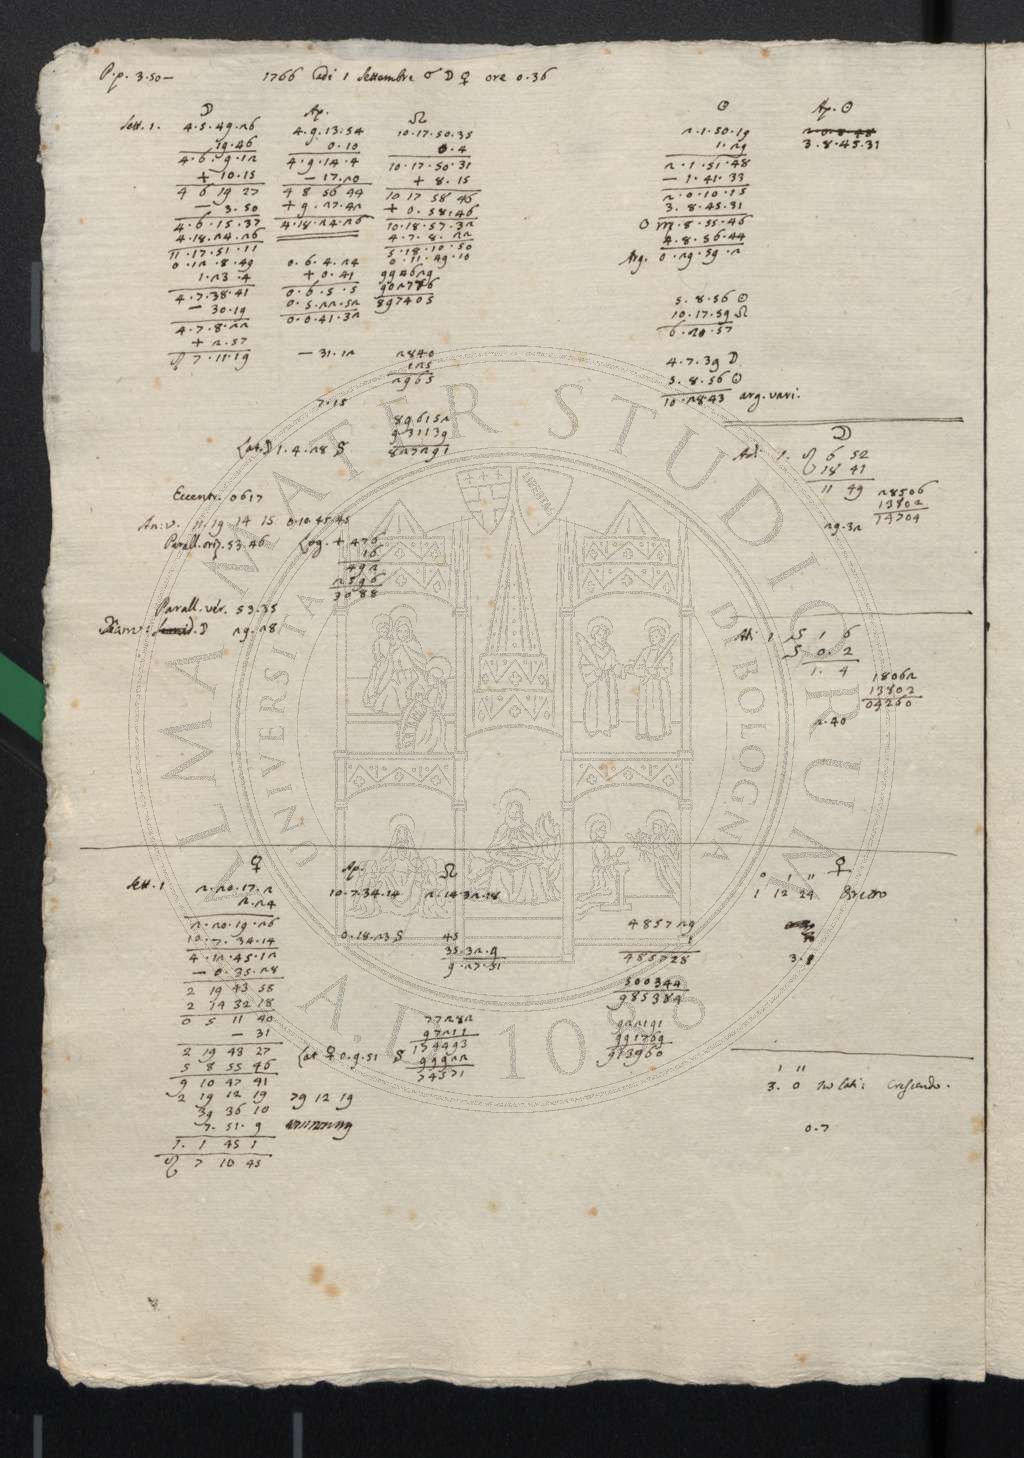 P.p. 3.50 — 1766 Adi 1 Settembre ☌ ☽ ♀ ore 0.36
☽ Ap. ☊
Sett. 1. 4.5.49.26 4.9.13.54 10.17.50.35
19.46 0.10 0.4
4.6.9.12 4.9.14.4 10.17.50.31
+ 10.15 — 17.20 + 8.15
4 6 19 27 4 8 56 44 10 17 58 46
— 3.50 + 9.27.42 + 0.58.46
4.6.15.37 4.18.24.26 10.18.57.32
4.18.24.26 4.7.8.22
11.17.51.11 5.18.10.50
0.12.8.49 0.6.4.24 0.11.49.10
1.23.4 + 0.41 994629
4.7.38.41 0.6.5.5
— 30.19 0.5.22.52 897405
4.7.8.22 0.0.41.32
+ 2.57
♌ 7.11.19 — 31.12 2840
125
2965
7.15
896152
931139
827291
Lat. ☽ 1.4.28 S
Eccentr. 0617
An: v. 11 19 14 15 0.10.45.45
Parall. oriz. 53.46 Log. + 476
16
492
2596
3088
Parall. ver. 53.35
Diam: ☽ 29.28
☉ Ap. ☉
2.1.50.19
1.29 3.8.45.31
2.1.51.48
— 1.41.33
2.0.10.15
3.8.45.31
☉ ♍.8.55.46
4.8.56.44
Arg. 0.29.59.2
5.8.56 ☉
10.17.59 ☊
6.20.57
4.7.39 ☽
5.8.56 ☉
10.28.43 arg. vari.
☽
Adi 1. ♌ 6 52
18 41
11 49 28506
13802
14704
29.32
Adi 1 S 1 6
S 0.2
1.4
18062
13802
04260
2.40
♀ Ap. ☊
Sett. 1 2.20.17.2 10.7.34.14 2.14.32.18
2.24
2.20.19.26
10.7.34.14 0.18.23 S 45
4.12.45.12 35.32.9
— 0.35.28 9.27.51
2 19 43 55
2 14 32 18
0 5 11 40
— 31
2 19 43 27 Lat ♀ 0.9.51 S
5 8 55 46
9 10 47 41
2 19 12 19 79 12 19
39 36 10
7.51.9
7.1 45 1
♌ 7 10 45
77282
97211
174493
99922
74571
485729
1
485728
500344
985384
922191
991769
913960
♀
° ′ ″
1 12 24 Diretto
3.8
′ ″
3.0 In lati: Crescendo.
0.7
ALMA MATER STUDIORUM
UNIVERSITA DI BOLOGNA
A.D. 1088